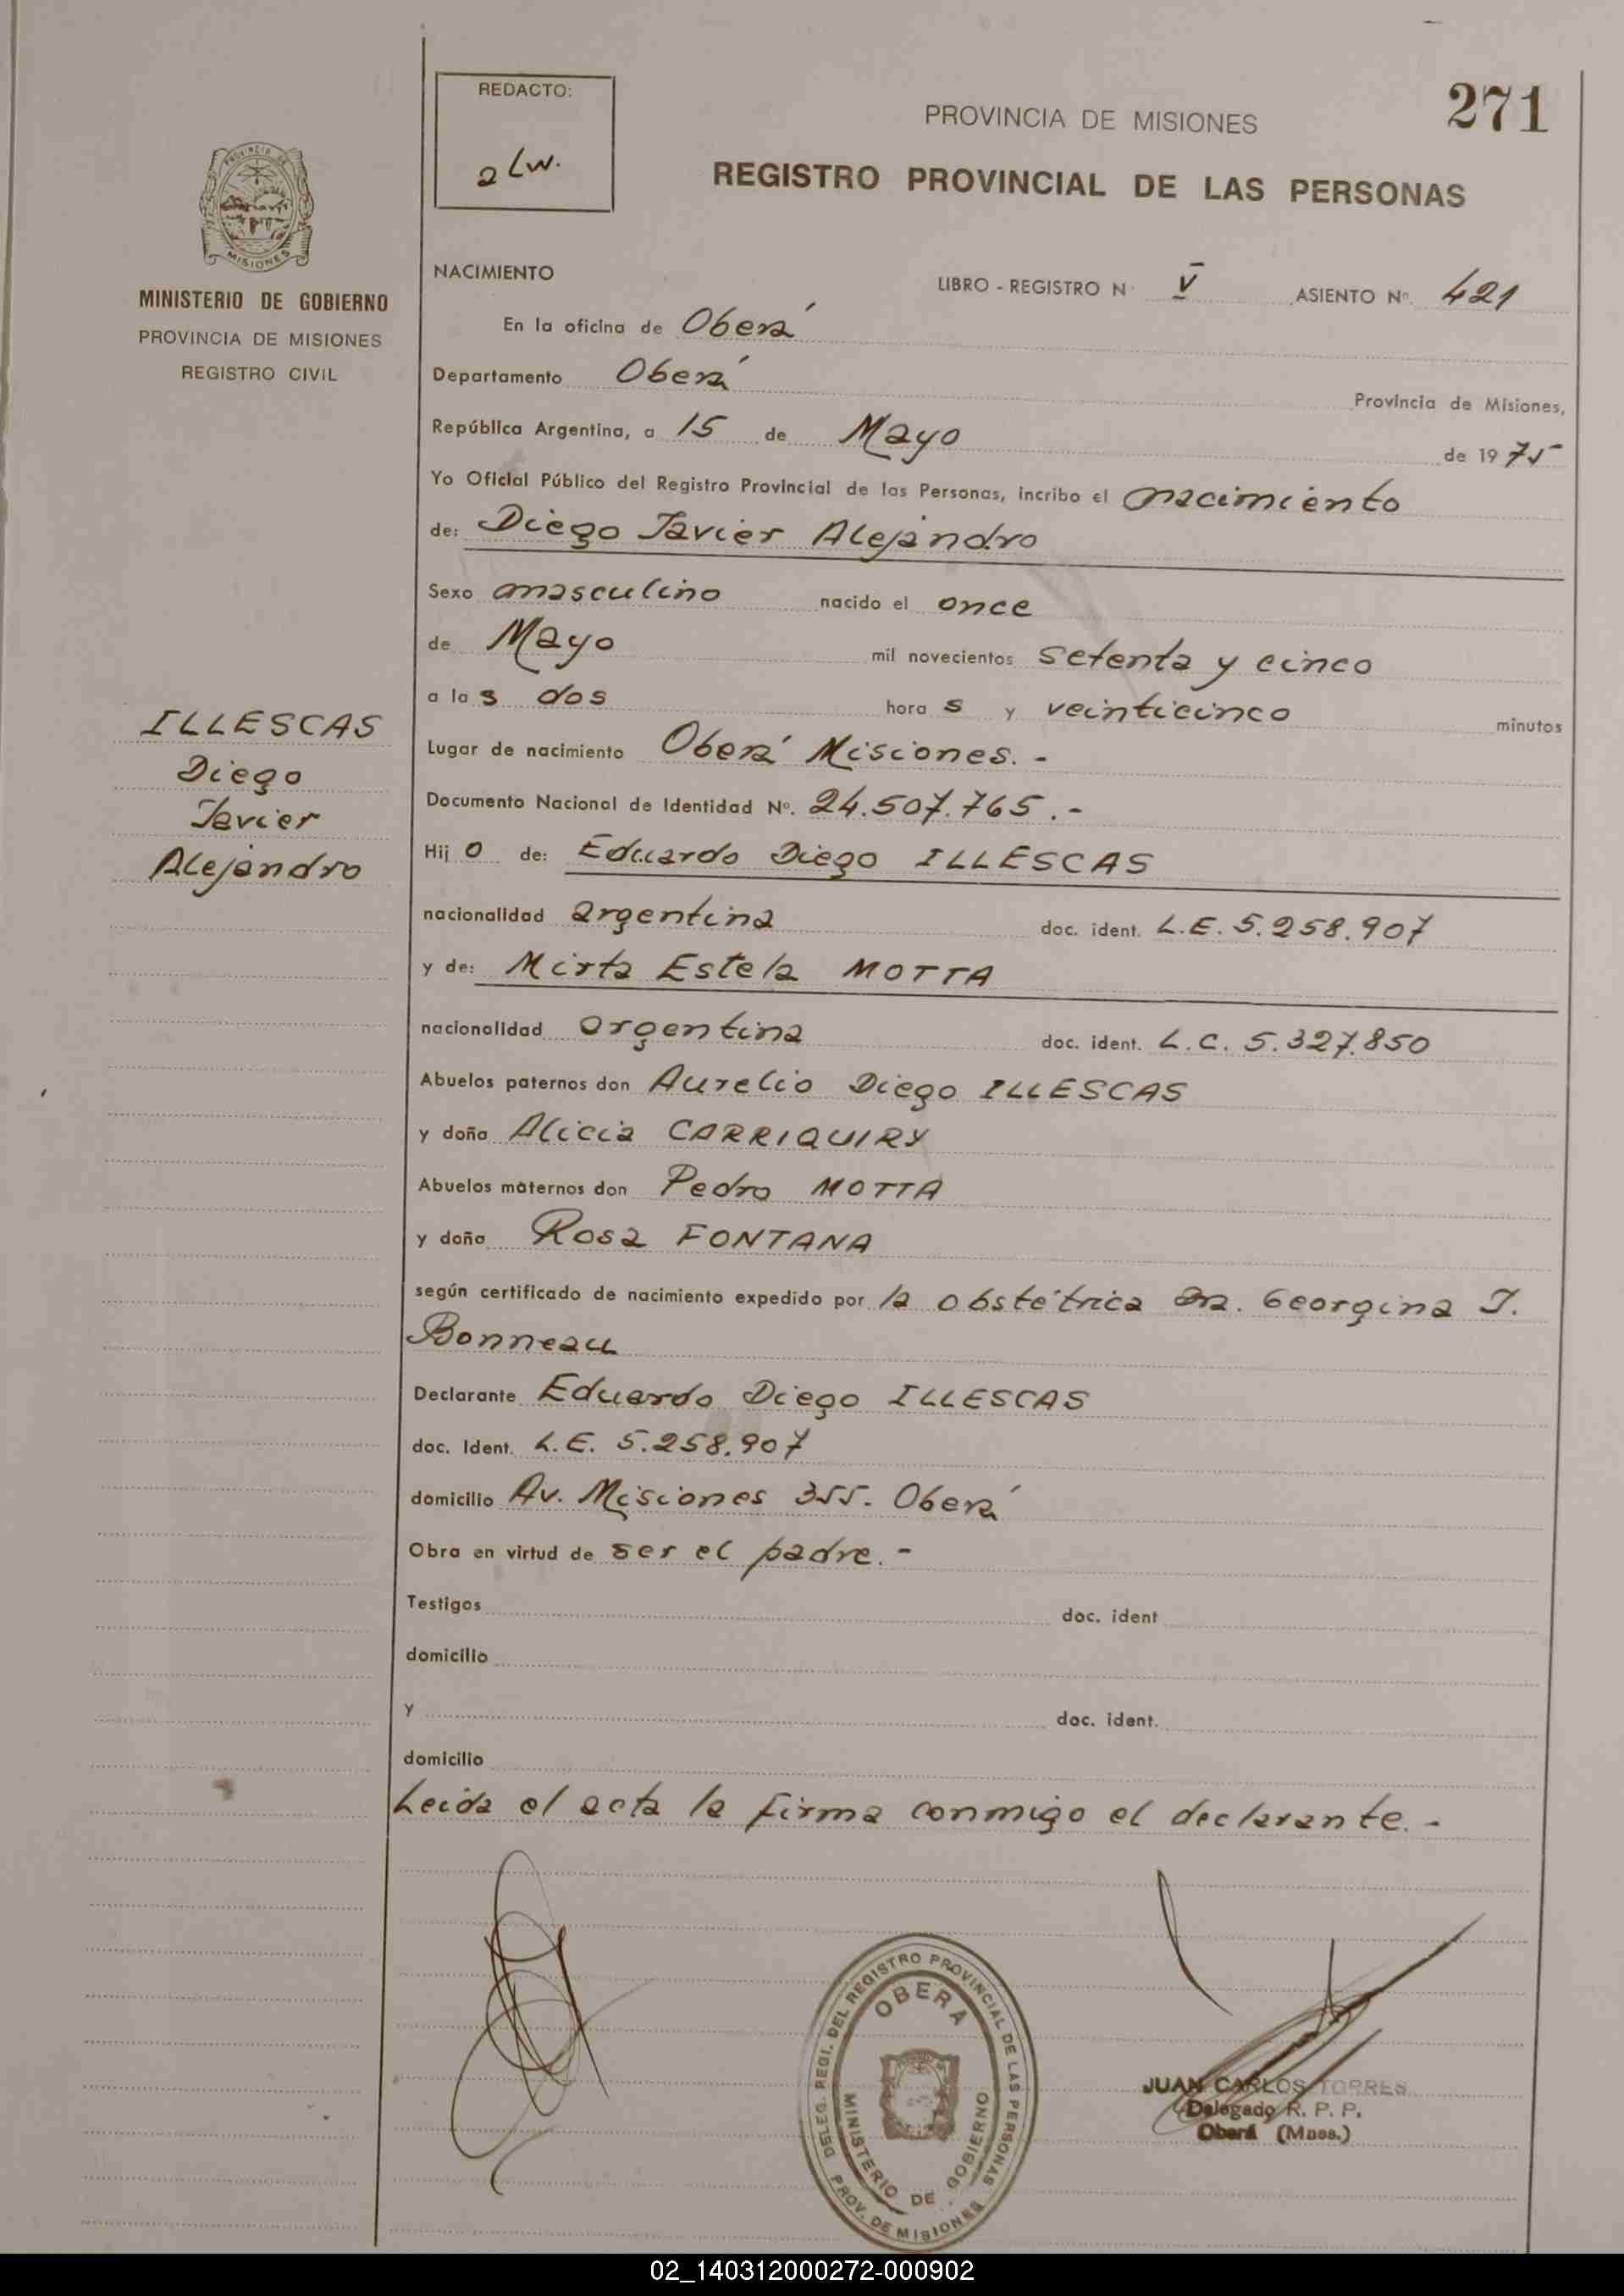 271
REDACTO:
PROVINCIA DE MISIONES
REGISTRO PROVINCIAL DE LAS PERSONAS
PROVINCIA DE
MISIONES
MINISTERIO DE GOBIERNO
PROVINCIA DE MISIONES
REGISTRO CIVIL
ILLESCAS
Diego
Javier
Alejandro
NACIMIENTO LIBRO - REGISTRO N V ASIENTO Nº. 421
En la oficina de Oberá
Departamento Oberá Provincia de Misiones,
República Argentina, a 15 de Mayo de 1975
Yo Oficial Público del Registro Provincial de las Personas, incribo el nacimiento
de: Diego Javier Alejandro
Sexo masculino nacido el once
de Mayo mil novecientos setenta y cinco
a las dos horas y veinticinco minutos
Lugar de nacimiento Oberá Misiones. -
Documento Nacional de Identidad Nº. 24.507.765. -
Hijo de: Eduardo Diego ILLESCAS
nacionalidad argentina doc. ident. L.E. 5.258.907
y de: Mirta Estela MOTTA
nacionalidad argentina doc. ident. L.C. 5.327.850
Abuelos paternos don Aurelio Diego ILLESCAS
y doña Alicia CARRIQUIRY
Abuelos maternos don Pedro MOTTA
y doña Rosa FONTANA
según certificado de nacimiento expedido por la obstétrica Dra. Georgina J.
Bonneau
Declarante Eduardo Diego ILLESCAS
doc. Ident. L.E. 5.258.907
domicilio Av. Misiones 355. Oberá
Obra en virtud de ser el padre. -
Testigos doc. ident
domicilio
y doc. ident.
domicilio
Leida el acta la firma conmigo el declarante. -
DELEG. REGI. DEL REGISTRO PROVINCIAL DE LAS PERSONAS
OBERA
MINISTERIO DE GOBIERNO
PROV. DE MISIONES
JUAN CARLOS TORRES
Delegado R. P. P.
Oberá (Mnes.)
02_140312000272-000902